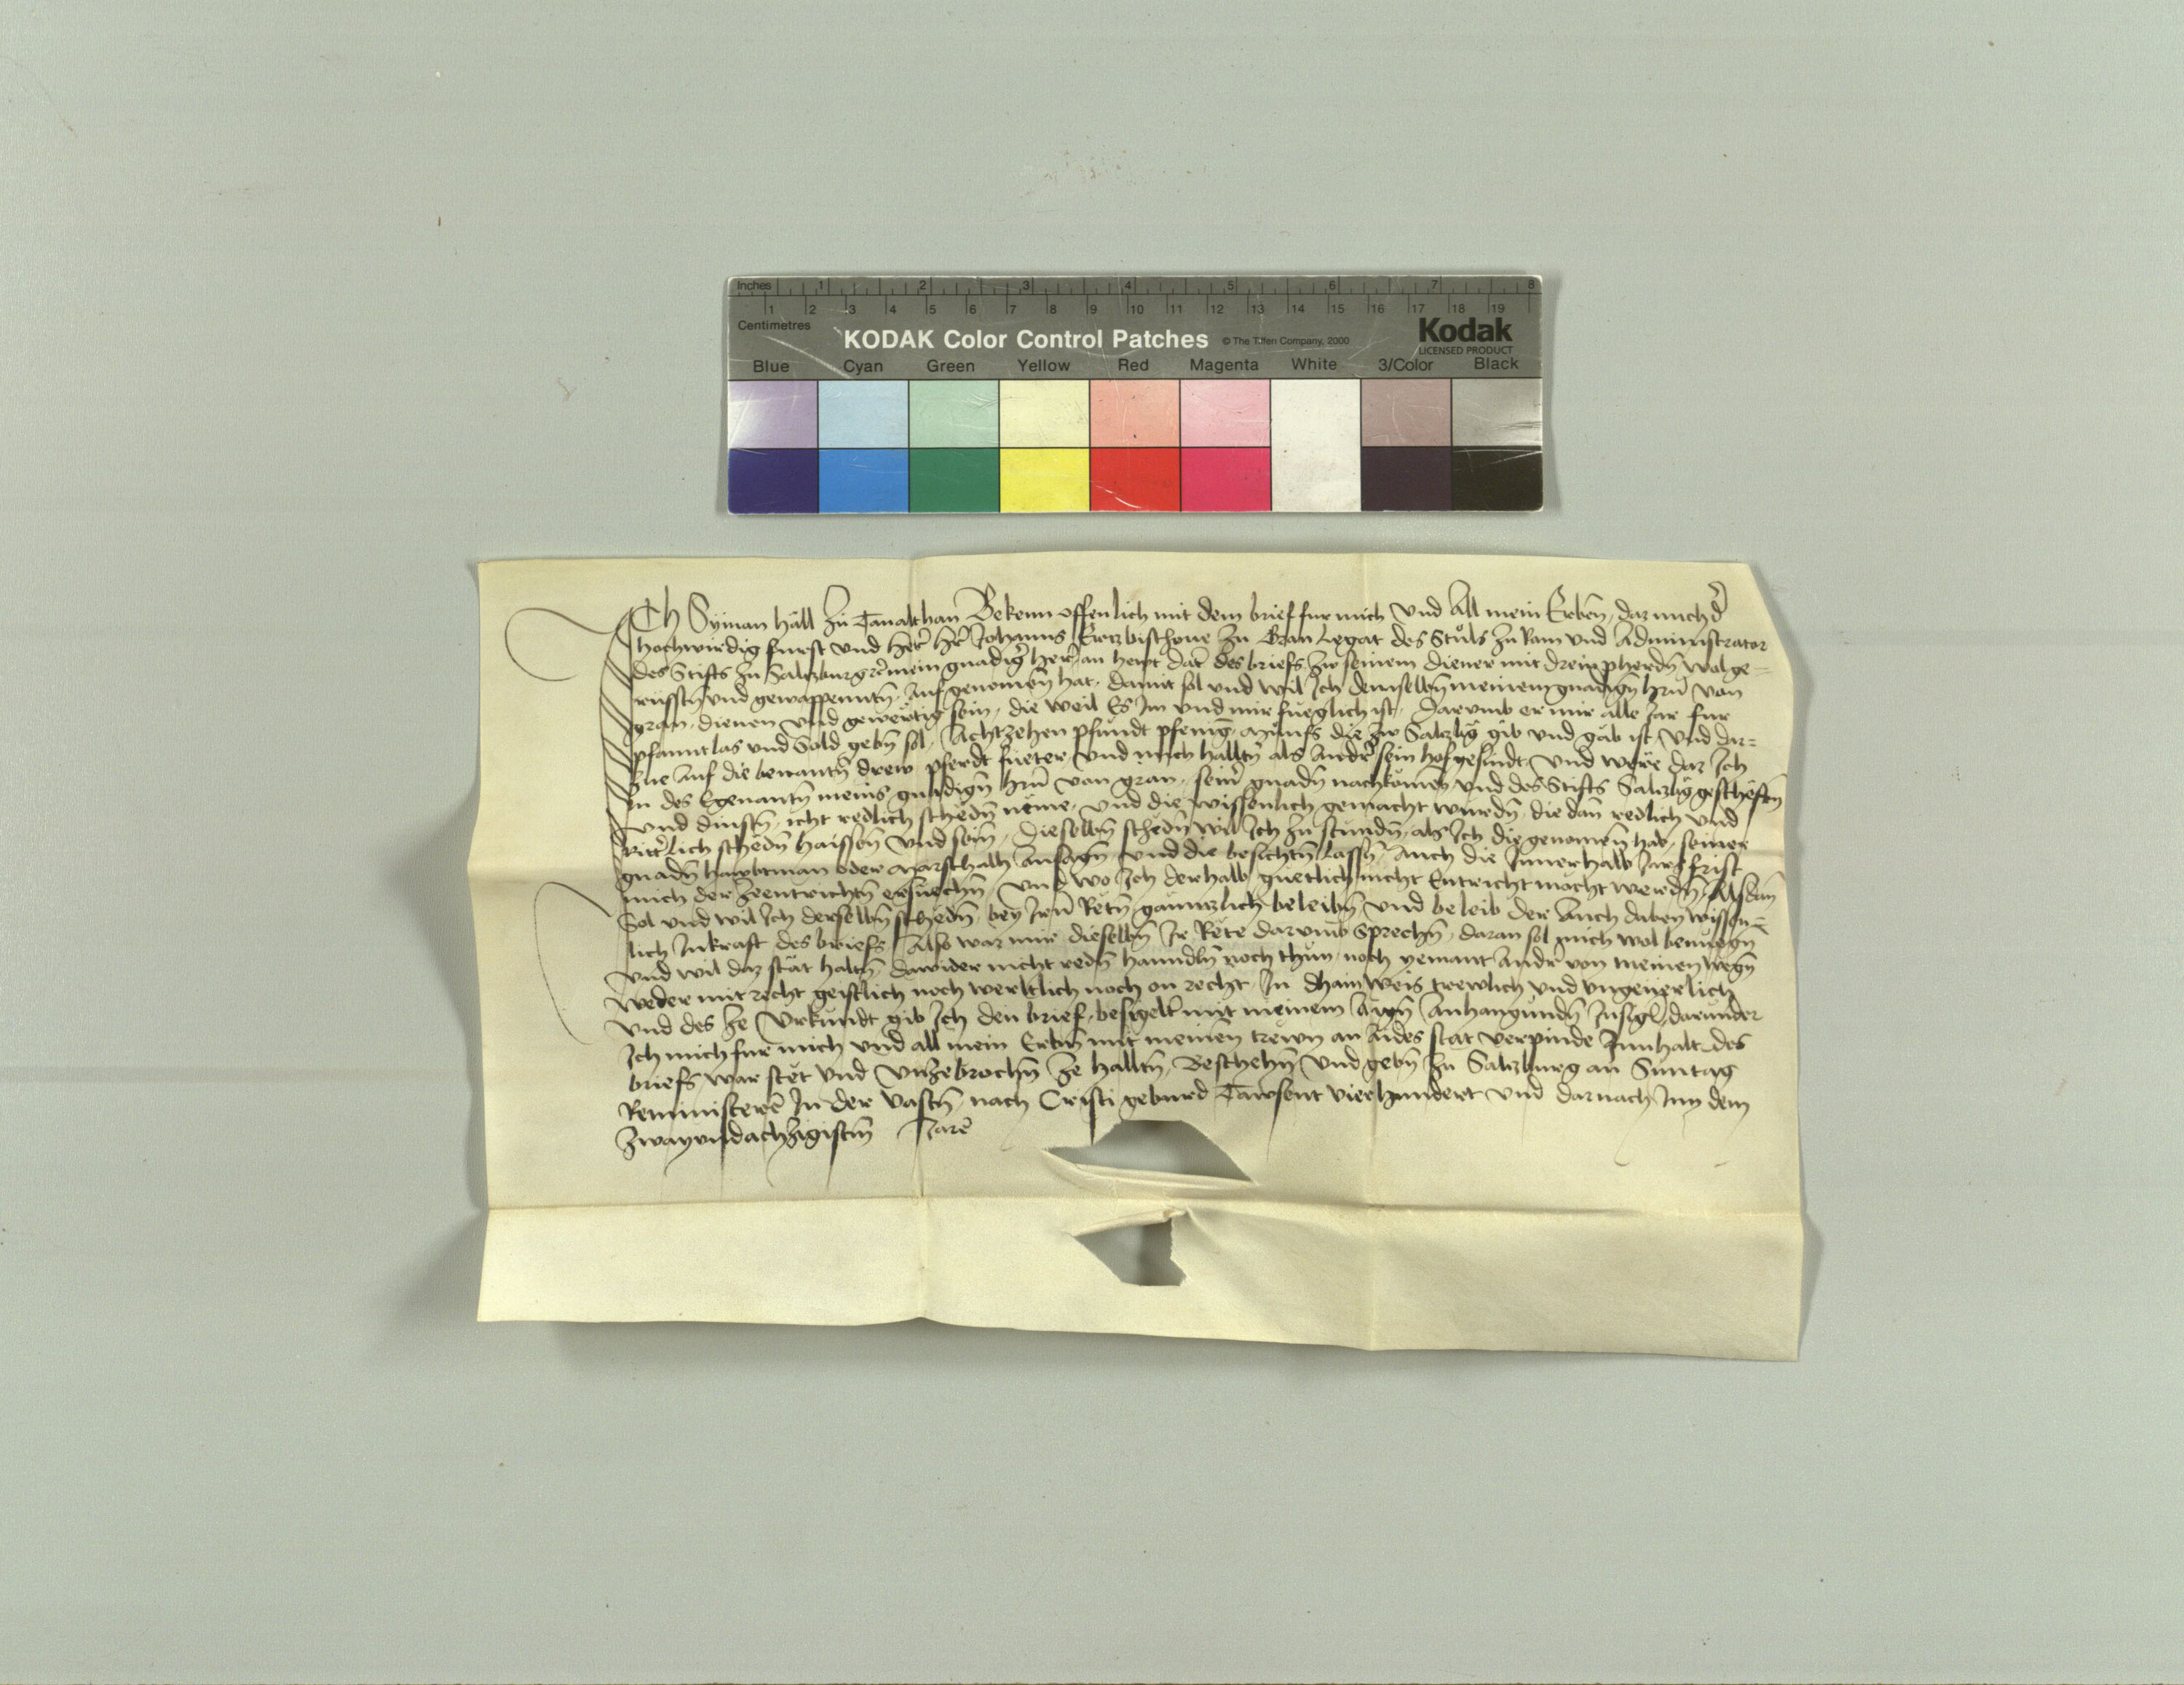 Inches 1 2 3 4 5 6 7 8
1 2 3 4 5 6 7 8 9 10 11 12 13 14 15 16 17 18 19
Centimetres
KODAK Color Control Patches © The Tiffen Company, 2000 Kodak
LICENSED PRODUCT
Blue Cyan Green Yellow Red Magenta White 3/Color Black
ICh Syman Häll zu Tanalthan Bekenn offenlich mit dem brief fur mich und All mein Erben, daz mich d̄
hochwirdig furst und her̄ hr̄ Johanns Ertzbischove zu Gran Legat des Stuls zu Rom und Administrator
des Stifts zu Saltzburg rc̄ mein gnadiḡ her̄, an hewt dat̄ des briefs, zw seinem diener mit drein pherdn̄ wol ge=
russtn̄ und gewappenntn̄, Aufgenomen̄ hat, damit sol und wil Ich demselbn̄ meinem gnadign̄ hrn̄ von
gran, dienen und gewertig sein, die weil Es Im und mir fueglich ist, darumb er mir alle Jar fur
pfanntlos und Sold gebn̄ sol, Achtzehen pfundt pfeniḡ, Munss die zw Saltzbḡ gib und gäb ist, und dar=
zue Auf die benantn̄ drew pferdt fueter, und mich halltn̄ als Andr̄ sein hofgesindt, und were daz Ich
In des Egenantn̄ meins gnadign̄ hrn̄ von gran, sein̄ gnadn̄ nachkomen̄ und des Stifts Saltzbḡ gescheftn̄
und dinstn̄, icht redlich schedn̄ neme, und die wissenlich gemacht wurdn̄, die dan̄ redlich und
Ritt̄lich schedn̄ haissen̄ und sein̄, dieselbn̄ schedn̄ wil Ich zu stundn̄, als Ich die genomen̄ hab, seiner
gnadn̄ haubtman oder Marschalh Ansagn̄, und die besichtn̄ lassn̄, Auch die Innerhalb Jars frist
mich der zeentrichtn̄ ersuechn̄, Und wo Ich derhalb guetlich nicht Entricht mocht werdn̄, Alsdan̄
Sol und wil Ich derselbn̄ schedn̄, bey Irn̄ Retn̄ ganntzlich beleibn̄, und beleib der Auch dabey wissen=
lich Inkraft des briefs, Also was mir dieselbn̄ Ir Rete darumb Sprechn̄, daran sol mich wol benuegn̄
und wil daz stät haltn̄, dawider nicht redn̄ hanndln̄ noch thun, noch yemant Andr̄ von meinen wegn̄
weder mit recht geistlich noch werltlich noch on recht, In dhain weis trewlich und ungeuerlich
Und des ze Urkundt gib Ich den brief, besigelt̄ mit meinem Aign̄ Anhangundn̄ Insigl̄, darunder
Ich mich fur mich und all mein Erbn̄ mit meinen trewn an Aides stat verpinde Innhalt des
briefs war stet und Unzebrochn̄ ze halltn̄, Beschehn̄ und gebn̄ zu Saltzburg an Suntag
Reminiscere In der Vastn̄, nach Cristi geburd Tawsent vierhundert und darnach Inn dem
zwayundachzigistn̄ Jare